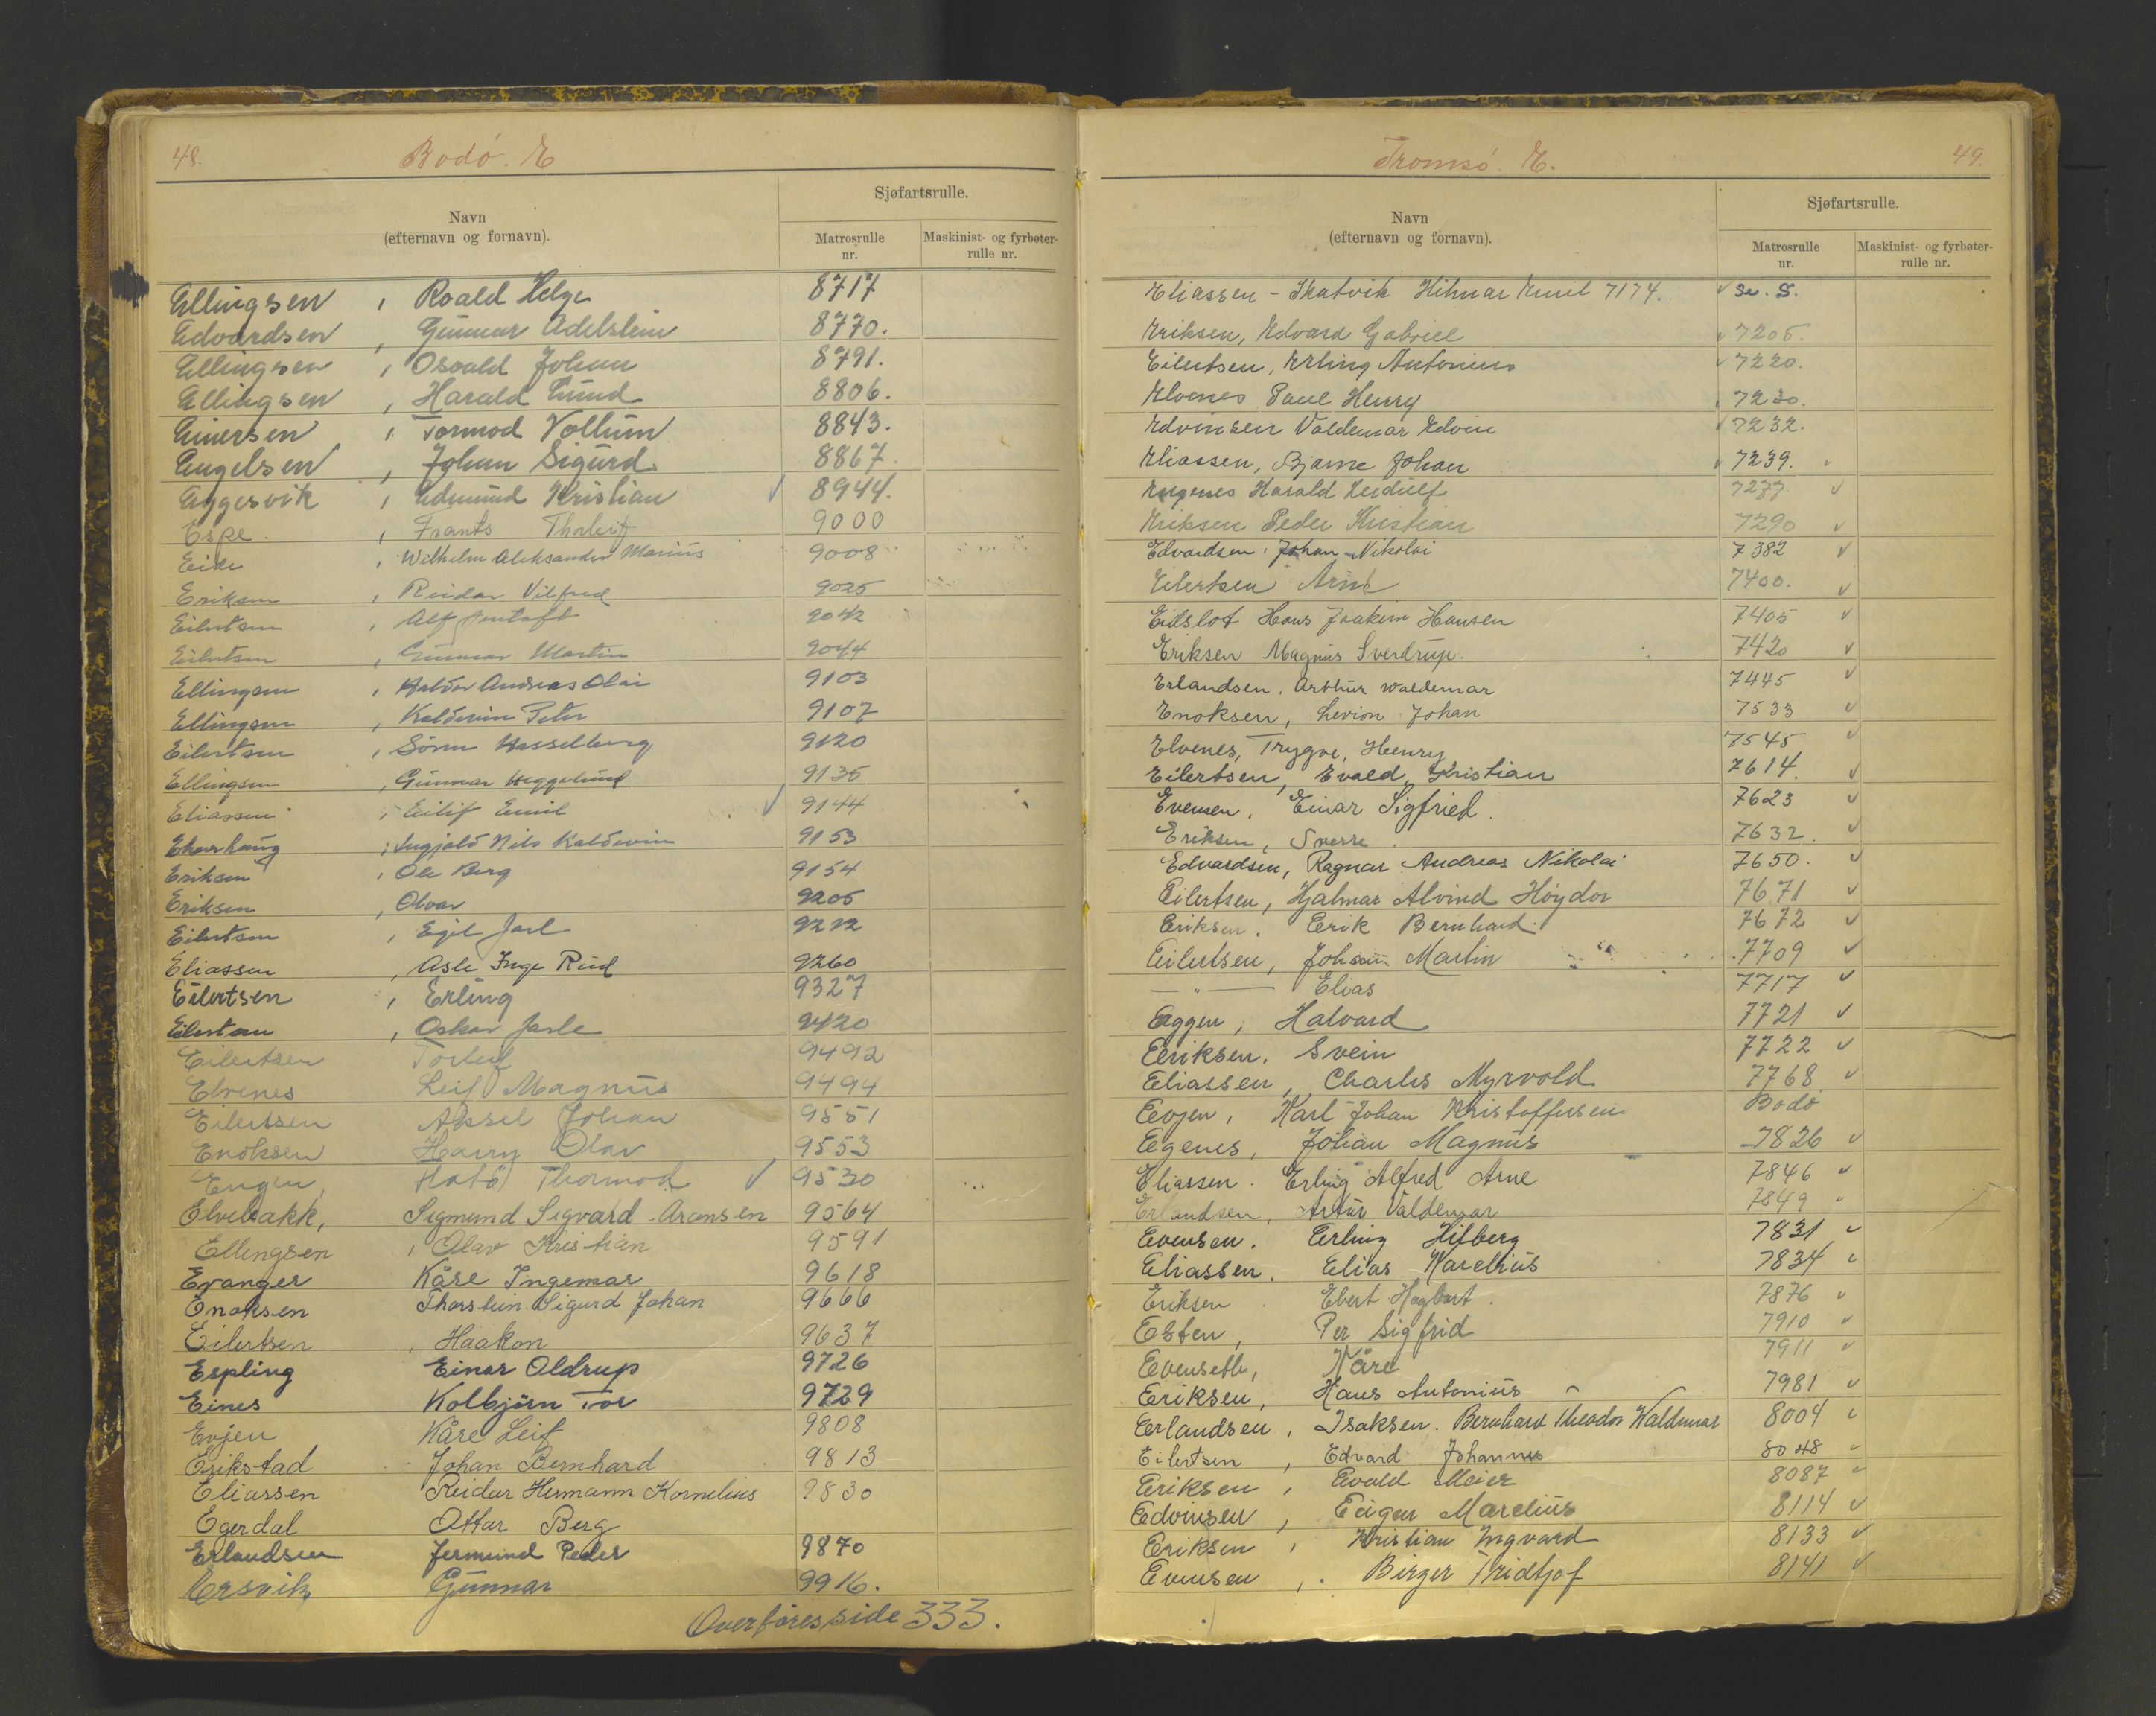 48.
Bodö. E
Navn
(efternavn og fornavn).
Sjøfartsrulle.
Matrosrulle
nr.
Maskinist- og fyrbøter-
rulle nr.
Ellingsen, Roald Helge 8717
Edvardsen, Gunnar Adelstein 8770.
Ellingsen, Osvald Johan 8791.
Ellingsen, Harald Emund 8806.
Einersen, Tormod Vollum 8843.
Engelsen, Johan Sigurd 8867.
Eggesvik, Edmund Kristian √ 8944.
Espe, Frants Thorleif 9000
Eide, Wilhelm Aleksander Marius 9008
Eriksen, Reidar Vilfred 9025
Eilertsen, Alf 9042
Eilertsen, Gunnar Martin 9044
Ellingsen, Halvor Andreas Olai 9103
Ellingsen, Kaldevin Peter 9107
Eilertsen, Sören Hasselberg 9120
Ellingsen, Gunnar Heggelund 9135
Eliassen, Eilif Emil √ 9144
Ekorhaug, Ingjald Nils Kaldevin 9153
Eriksen, Ole Berg 9154
Eriksen, Alvar 9205
Eilertsen, Egil Jarl 9222
Eliassen, Asle Inge Rud 9260
Eilertsen, Erling 9327
Eilertsen, Oskar Jarle 9420
Eilertsen Torleif 9492
Elvenes Leif Magnus 9494
Eilertsen Aksel Johan 9551
Enoksen Harry Olav 9553
Engen, Thormod √ 9530
Elvebakk, Sigmund Sigvard Aronsen 9564
Ellingsen, Olav Kristian 9591
Evanger Kåre Ingemar 9618
Enoksen Thorstein Sigurd Johan 9666
Eilertsen, Haakon 9637
Espling Einar Oldrup 9726
Eines Kolbjörn Tor 9729
Evjen Kåre Leif 9808
Erikstad Johan Bernhard 9813
Eliassen Reidar Hermann Kornelius 9830
Egerdal Ottar Berg
Erlandsen Jermund Peder 9870
Ersvik Gunnar 9916.
Overföres side 333.
Tromsö. E.
49.
Navn
(efternavn og fornavn).
Sjøfartsrulle.
Matrosrulle
nr.
Maskinist- og fyrbøter-
rulle nr.
Eliassen - Skatvik Hilmar Emil 7174. √ Se. S.
Eriksen, Edvard Gabriel √ 7205.
Eilertsen, Erling Antonius √ 7220.
Elvenes Paul Henry 7230.
Edvinsen Valdemar Edvin √ 7232.
Eliassen, Bjarne Johan √ 7239.
Engenes Harald 7277 √
Eriksen Peder Kristian 7290 √
Edvardsen, Johan Nikolai 7382 √
Eilertsen Arne 7400. √
Eidslot Hans Joakim Hansen 7405 √
Eriksen Magnus Sverdrup. 7420 √
Erlandsen, Arthur Waldemar 7445 √
Enoksen, Levion Johan 7533 √
Elvenes, Trygve, Henry 7545 √
Eilertsen, Evald Kristian 7614. √
Evensen, Einar Sigfried. 7623 √
Eriksen, Sverre. 7632. √
Edvardsen, Ragnar Andreas Nikolai 7650. √
Eilertsen, Hjalmar Alvind Höydor 7671 √
Eriksen, Erik Bernhard. 7672 √
Eilertsen, Johan Martin 7709 √
— " — Elias 7717 √
Eggen, Halvard 7721 √
Eriksen, Svein 7722 √
Eliassen, Charles Myrvold 7768 √
Evjen, Karl Johan Kristoffersen Bodö
Egenes, Johan Magnus 7826 √
Eliassen. Erling Alfred Arne 7846 √
Erlandsen, Artur Valdemar 7849 √
Evensen. Erling Hilberg 7831 √
Eliassen. Elias Karelius 7834 √
Eriksen Ebert Hagbart. 7876 √
Esten, Per Sigfrid 7910 √
Evenseth, Kåre 7911 √
Eriksen, Hans Antonius 7981 √
Erlandsen, Isaksen. Bernhard Theodor Waldemar 8004 √
Eilertsen, Edvard Johannes 8048 √
Eriksen, Evald Meier 8087 √
Edvinsen, Edgar Marelius 8114 √
Eriksen, Kristian Ingvard 8133 √
Evensen, Birger Fridtjof 8141 √